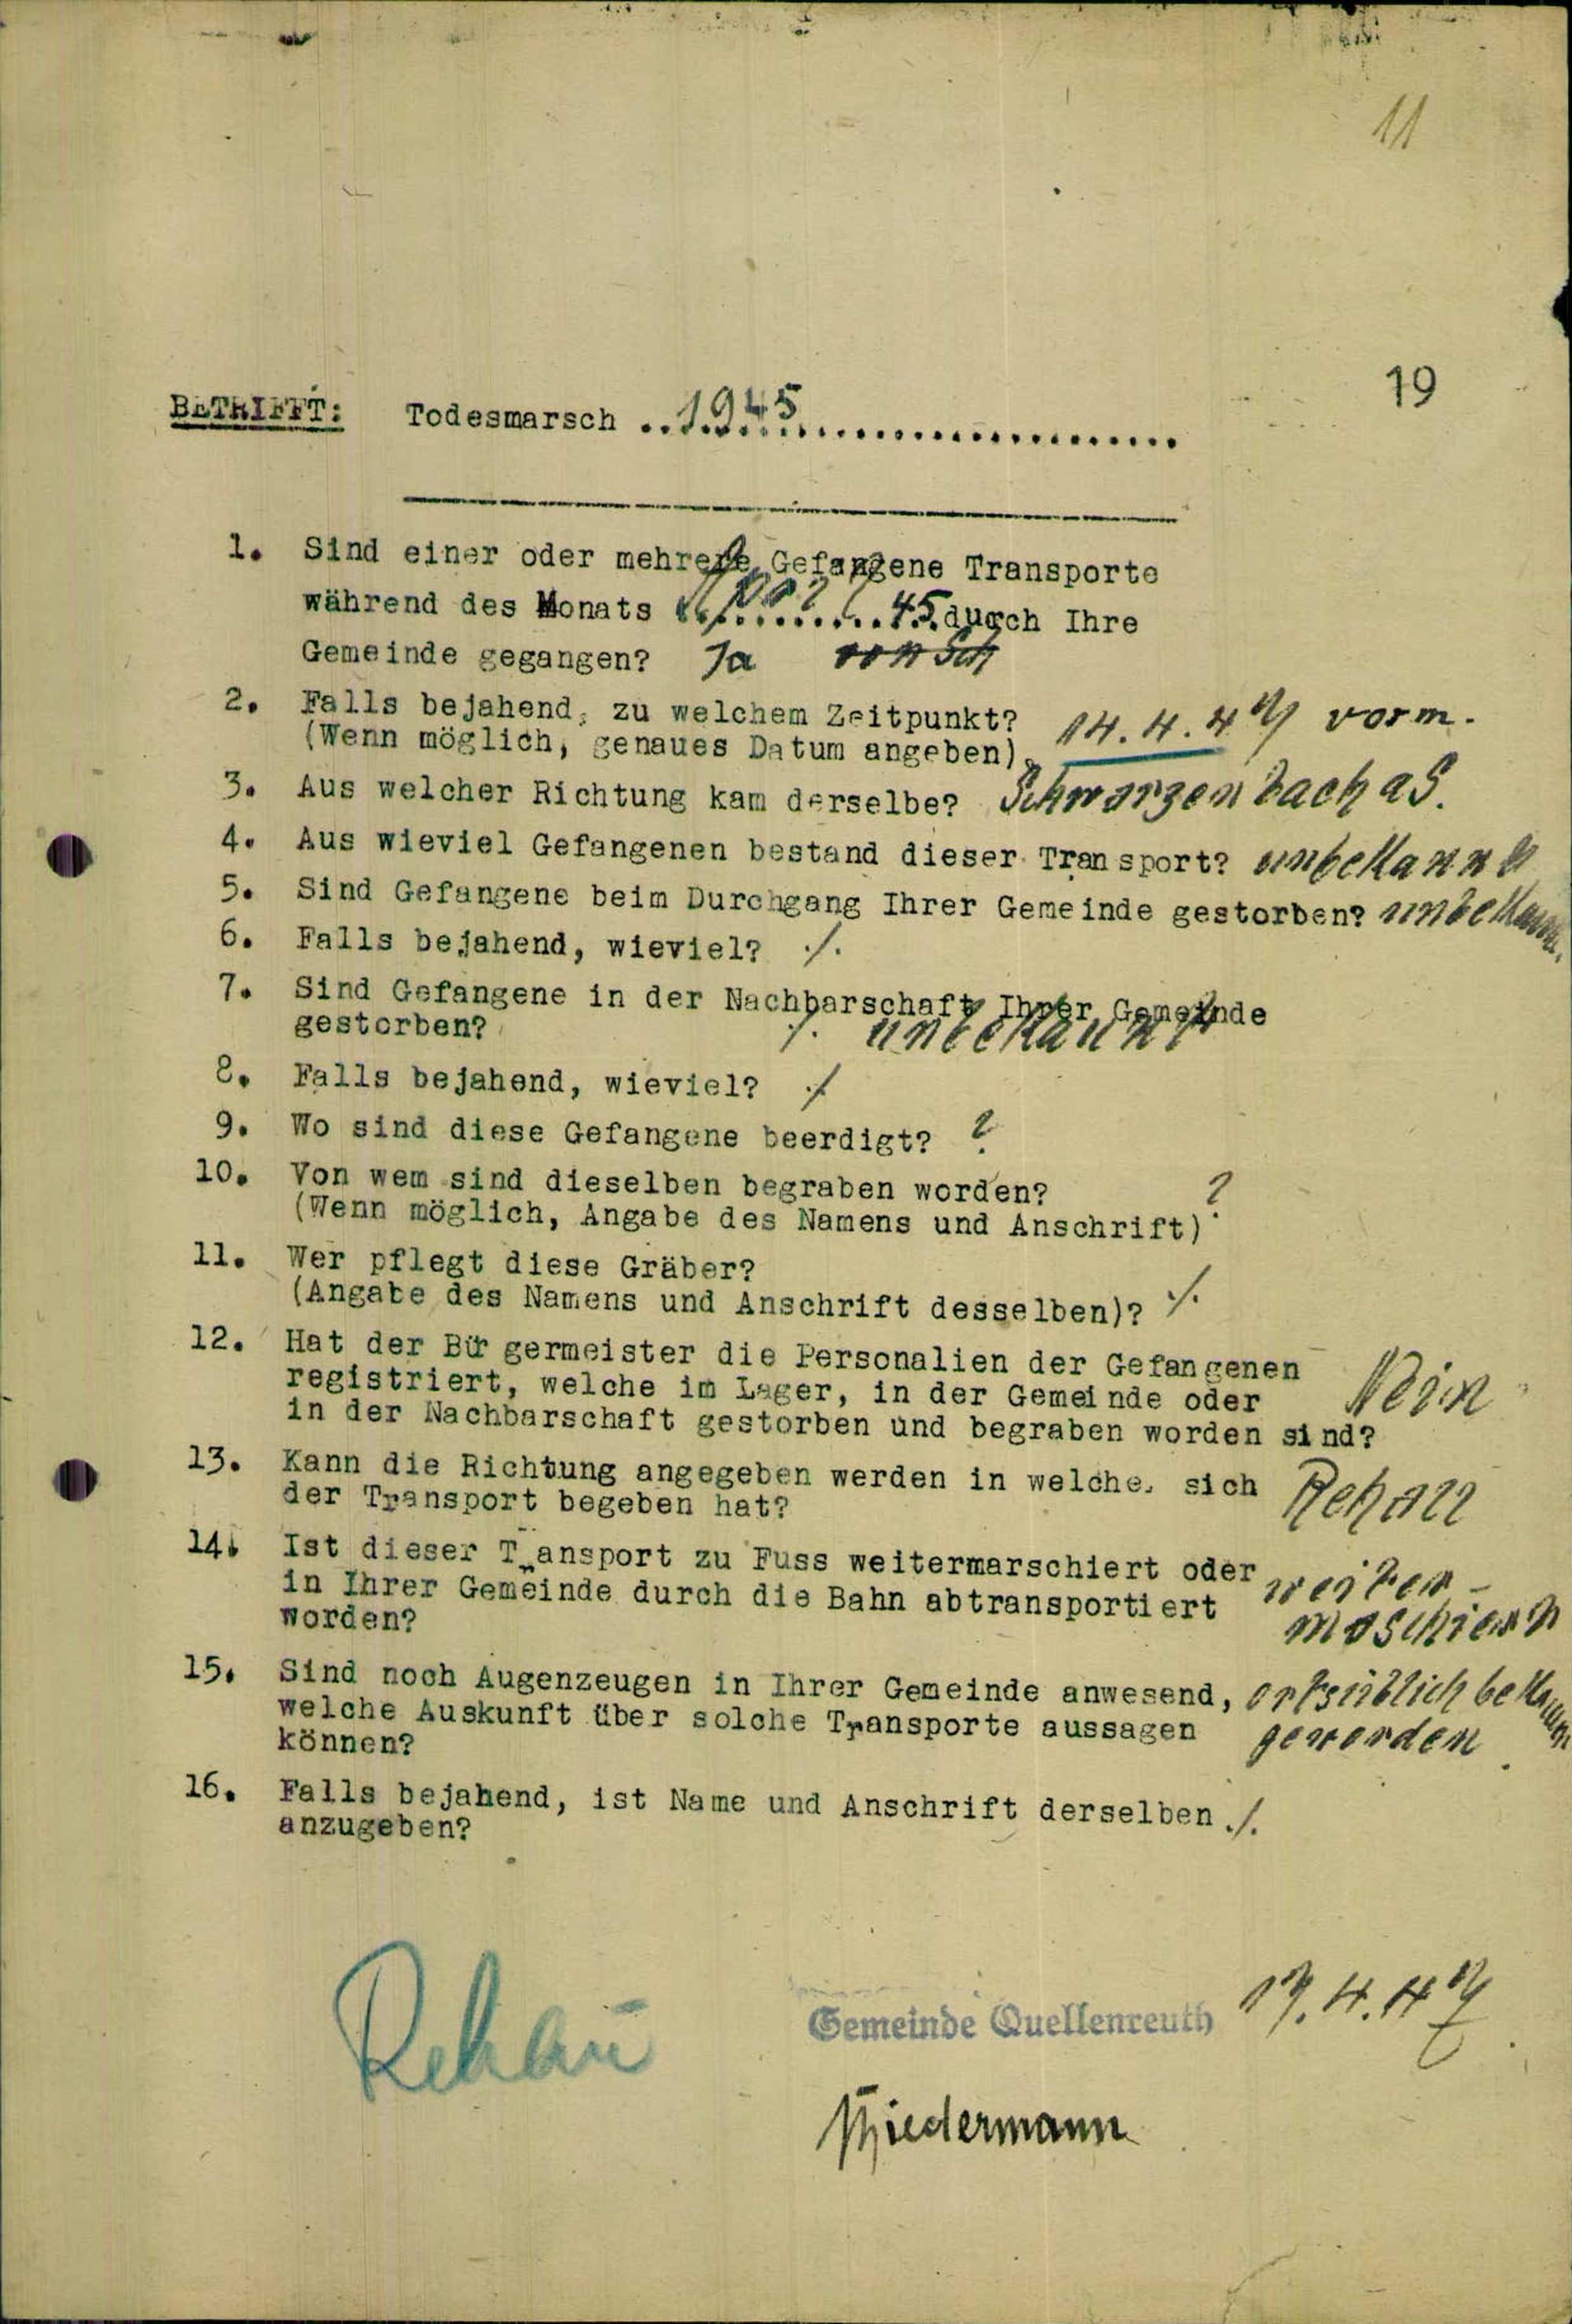 11
19
BETRIFFT: Todesmarsch ..1945..............................
1. Sind einer oder mehrere Gefangene Transporte
während des Monats April 45 durch Ihre
Gemeinde gegangen? Ja
2. Falls bejahend, zu welchem Zeitpunkt? 14.4.47 vorm.
(Wenn möglich, genaues Datum angeben)
3. Aus welcher Richtung kam derselbe? Schwarzenbach a S.
4. Aus wieviel Gefangenen bestand dieser Transport? unbekannt
5. Sind Gefangene beim Durchgang Ihrer Gemeinde gestorben? unbekannt
6. Falls bejahend, wieviel? ./.
7. Sind Gefangene in der Nachbarschaft Ihrer Gemeinde
gestorben? ./. unbekannt
8. Falls bejahend, wieviel? ./.
9. Wo sind diese Gefangene beerdigt? ?
10. Von wem sind dieselben begraben worden? ?
(Wenn möglich, Angabe des Namens und Anschrift)
11. Wer pflegt diese Gräber?
(Angabe des Namens und Anschrift desselben)? ./.
12. Hat der Bürgermeister die Personalien der Gefangenen
registriert, welche im Lager, in der Gemeinde oder Nein
in der Nachbarschaft gestorben und begraben worden sind?
13. Kann die Richtung angegeben werden in welche, sich Rehau
der Transport begeben hat?
14. Ist dieser Transport zu Fuss weitermarschiert oder weiter-
in Ihrer Gemeinde durch die Bahn abtransportiert maschiert
worden?
15. Sind noch Augenzeugen in Ihrer Gemeinde anwesend, ortsüblich bekann
welche Auskunft über solche Transporte aussagen geworden
können?
16. Falls bejahend, ist Name und Anschrift derselben ./.
anzugeben?
Rehau
Gemeinde Quellenreuth 17.4.47